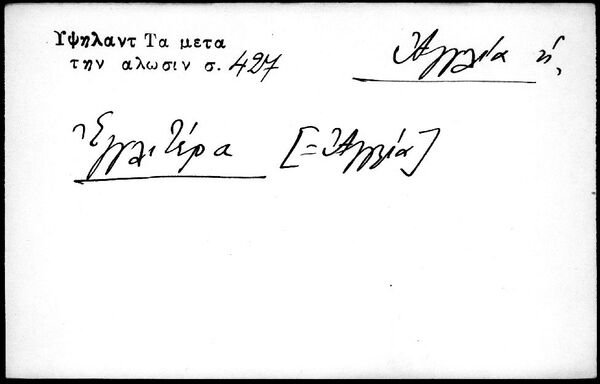 Υψηλαντ Τα μετα
την αλωσιν σ. 427
Ἀγγλία ἡ,
Ἐγγλιτέρα [=Ἀγγλία]